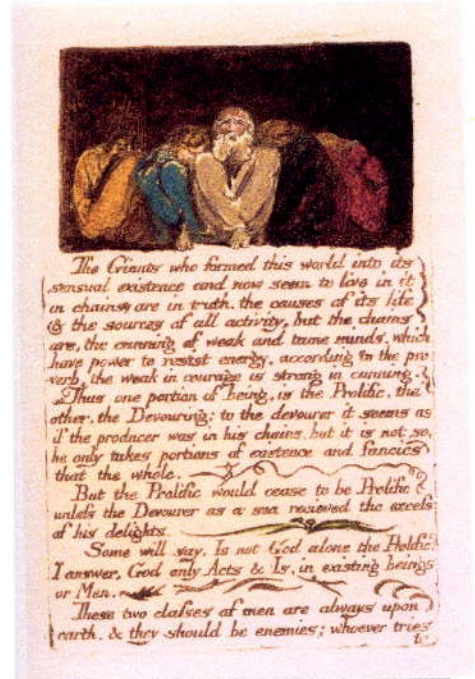 The Giants who formed this world into its
sensual existence and now seem to live in it
in chains, are in truth, the causes of its life
& the sources of all activity, but the chains
are, the cunning of weak and tame minds, which
have power to resist energy, according to the pro
verb, the weak in courage is strong in cunning.
Thus one portion of being, is the Prolific, the
other, the Devouring: to the devourer it seems as
if the producer was in his chains, but it is not so,
he only takes portions of existence and fancies
that the whole.
But the Prolific would cease to be Prolific
unleſs the Devourer as a sea recieved the exceſs
of his delights.
Some will say, Is not God alone the Prolific?
I answer, God only Acts & Is, in existing beings
or Men.
These two claſses of men are always upon
earth, & they should be enemies; whoever tries
to